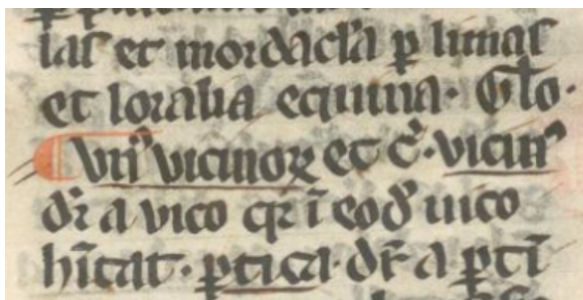 las et mordacľa ꝑ limas
et loralia equina. Glo.
¶ Vnꝰ vicinoꝝ et cͥ. vicinꝰ
dr̄ a vico qꝛ ī eodē uico
hītat. ꝑtica. dr̄ a ꝑtī